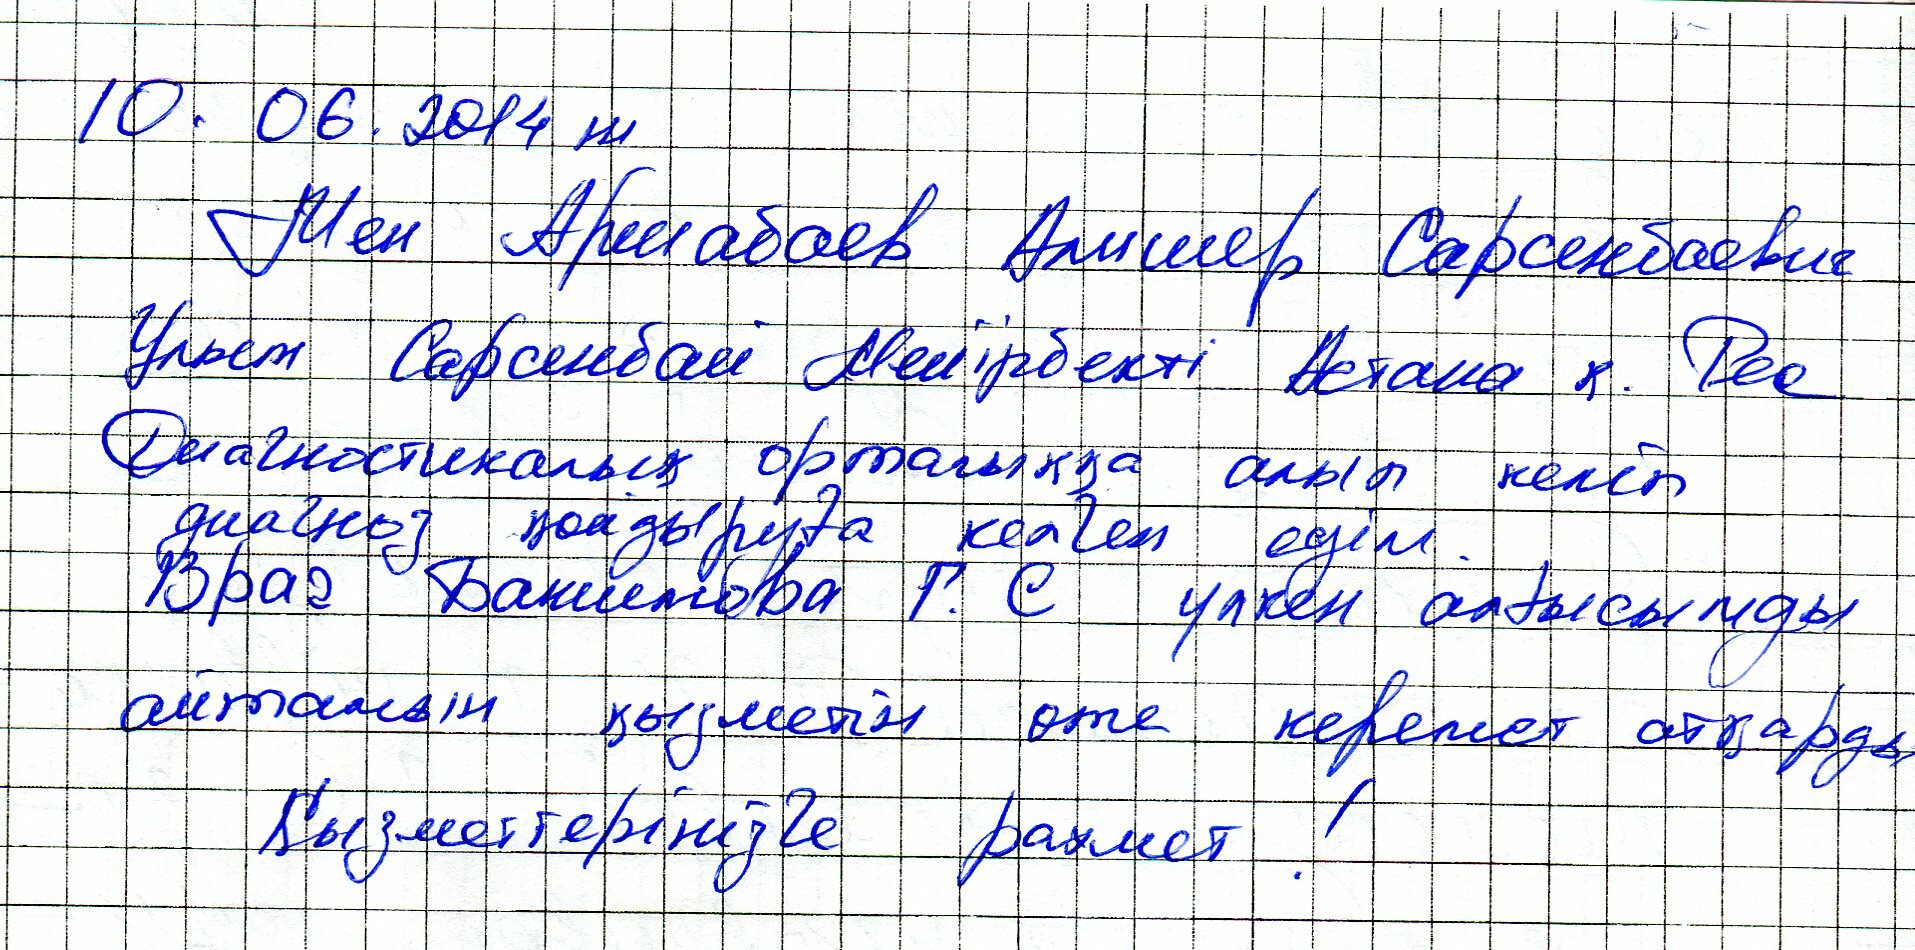 10. 06. 2014 ж
Мен Сарсенбаевич
Ұлым Сарсенбай Мейірбекті Астана қ. Рес
Диагностикалық орталыққа алып келіп
диагноз қойдыруға келген едім.
Врач Г. С үлкен алғысымды
айтамын қызметін өте керемет атқарды
Қызметтеріңізге рахмет!